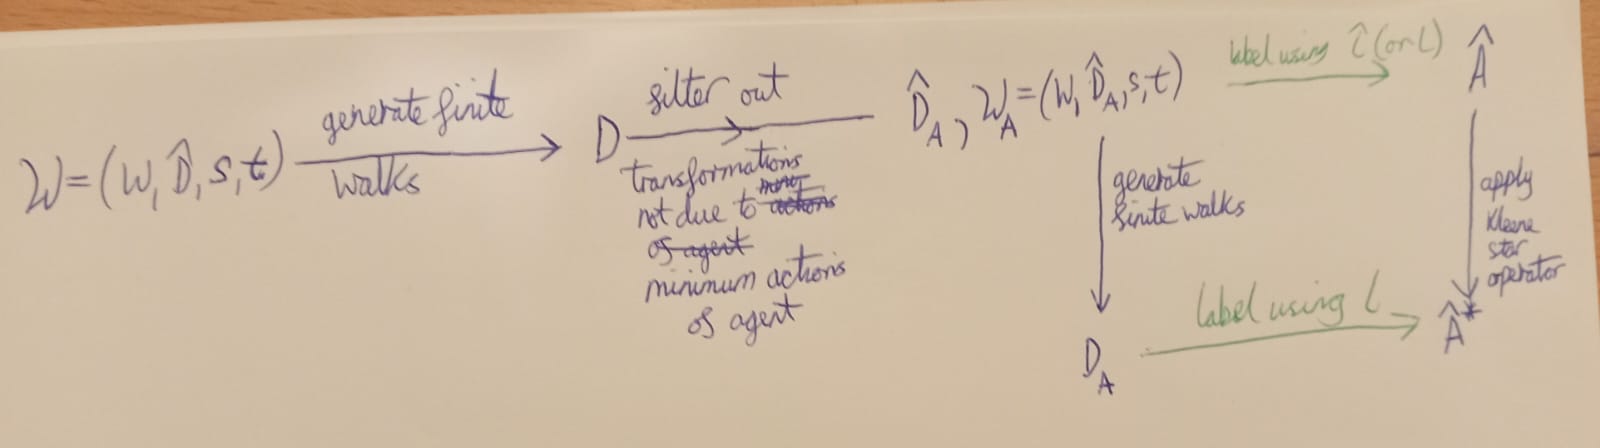 𝒲=(W, D̂, s, t)
generate finite
walks
D
filter out
transformations
not due to
minimum actions
of agent
D̂_A, 𝒲_A=(W, D̂_A, s, t)
label using l̂ (or l)
Â
generate
finite walks
apply
Kleene
star
operator
D_A
label using l
Â*